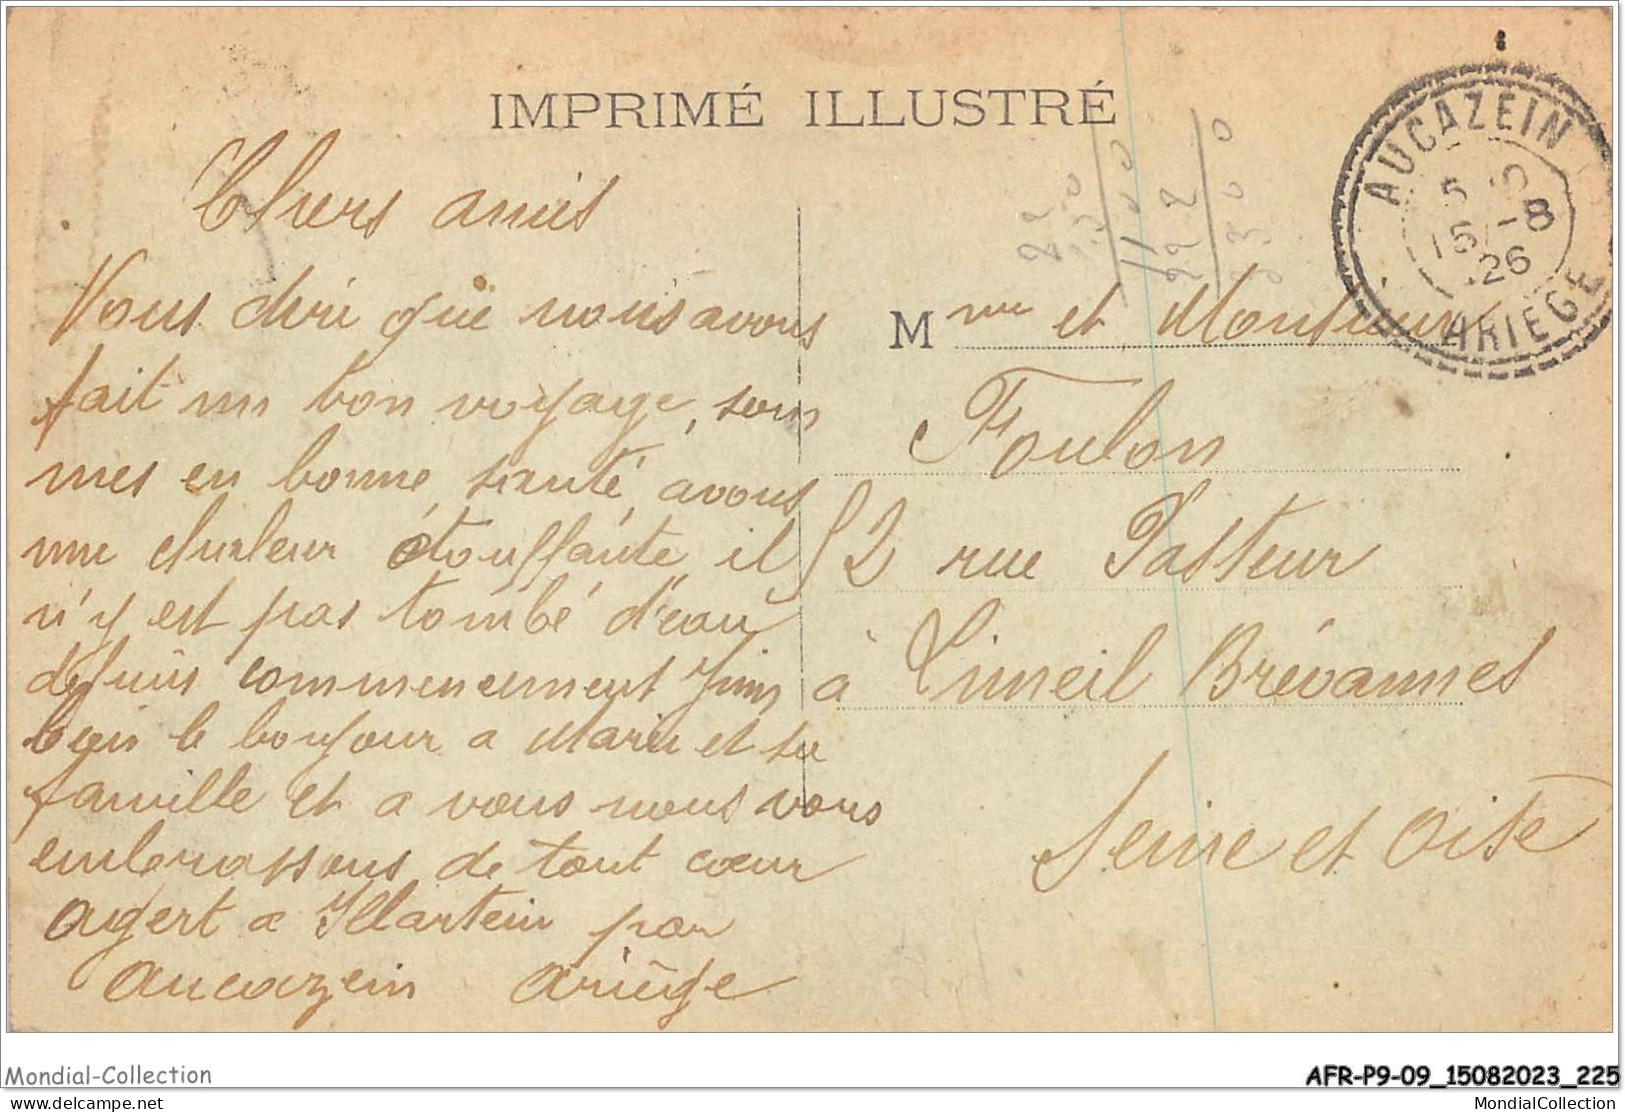 IMPRIMÉ ILLUSTRÉ
AUCAZEIN
15 -8
26
ARIEGE
Chers amis
Vous dire que nous avons
fait un bon voyage, som
mes en bonne santé, avons
une chaleur étouffante, il
n'y est pas tombé d'eau
depuis commencement Juin
le bonjour a Marie et sa
famille et a vous nous vous
embrassons de tout cœur
Augert a Illartein par
Aucazein Ariège
M me et Monsieur
Foulon
52 rue Pasteur
à Limeil Brévannes
Seine et Oise
22
50
1100
222
3300
Mondial-Collection
AFR-P9-09_15082023_225
delcampe.net
MondialCollection